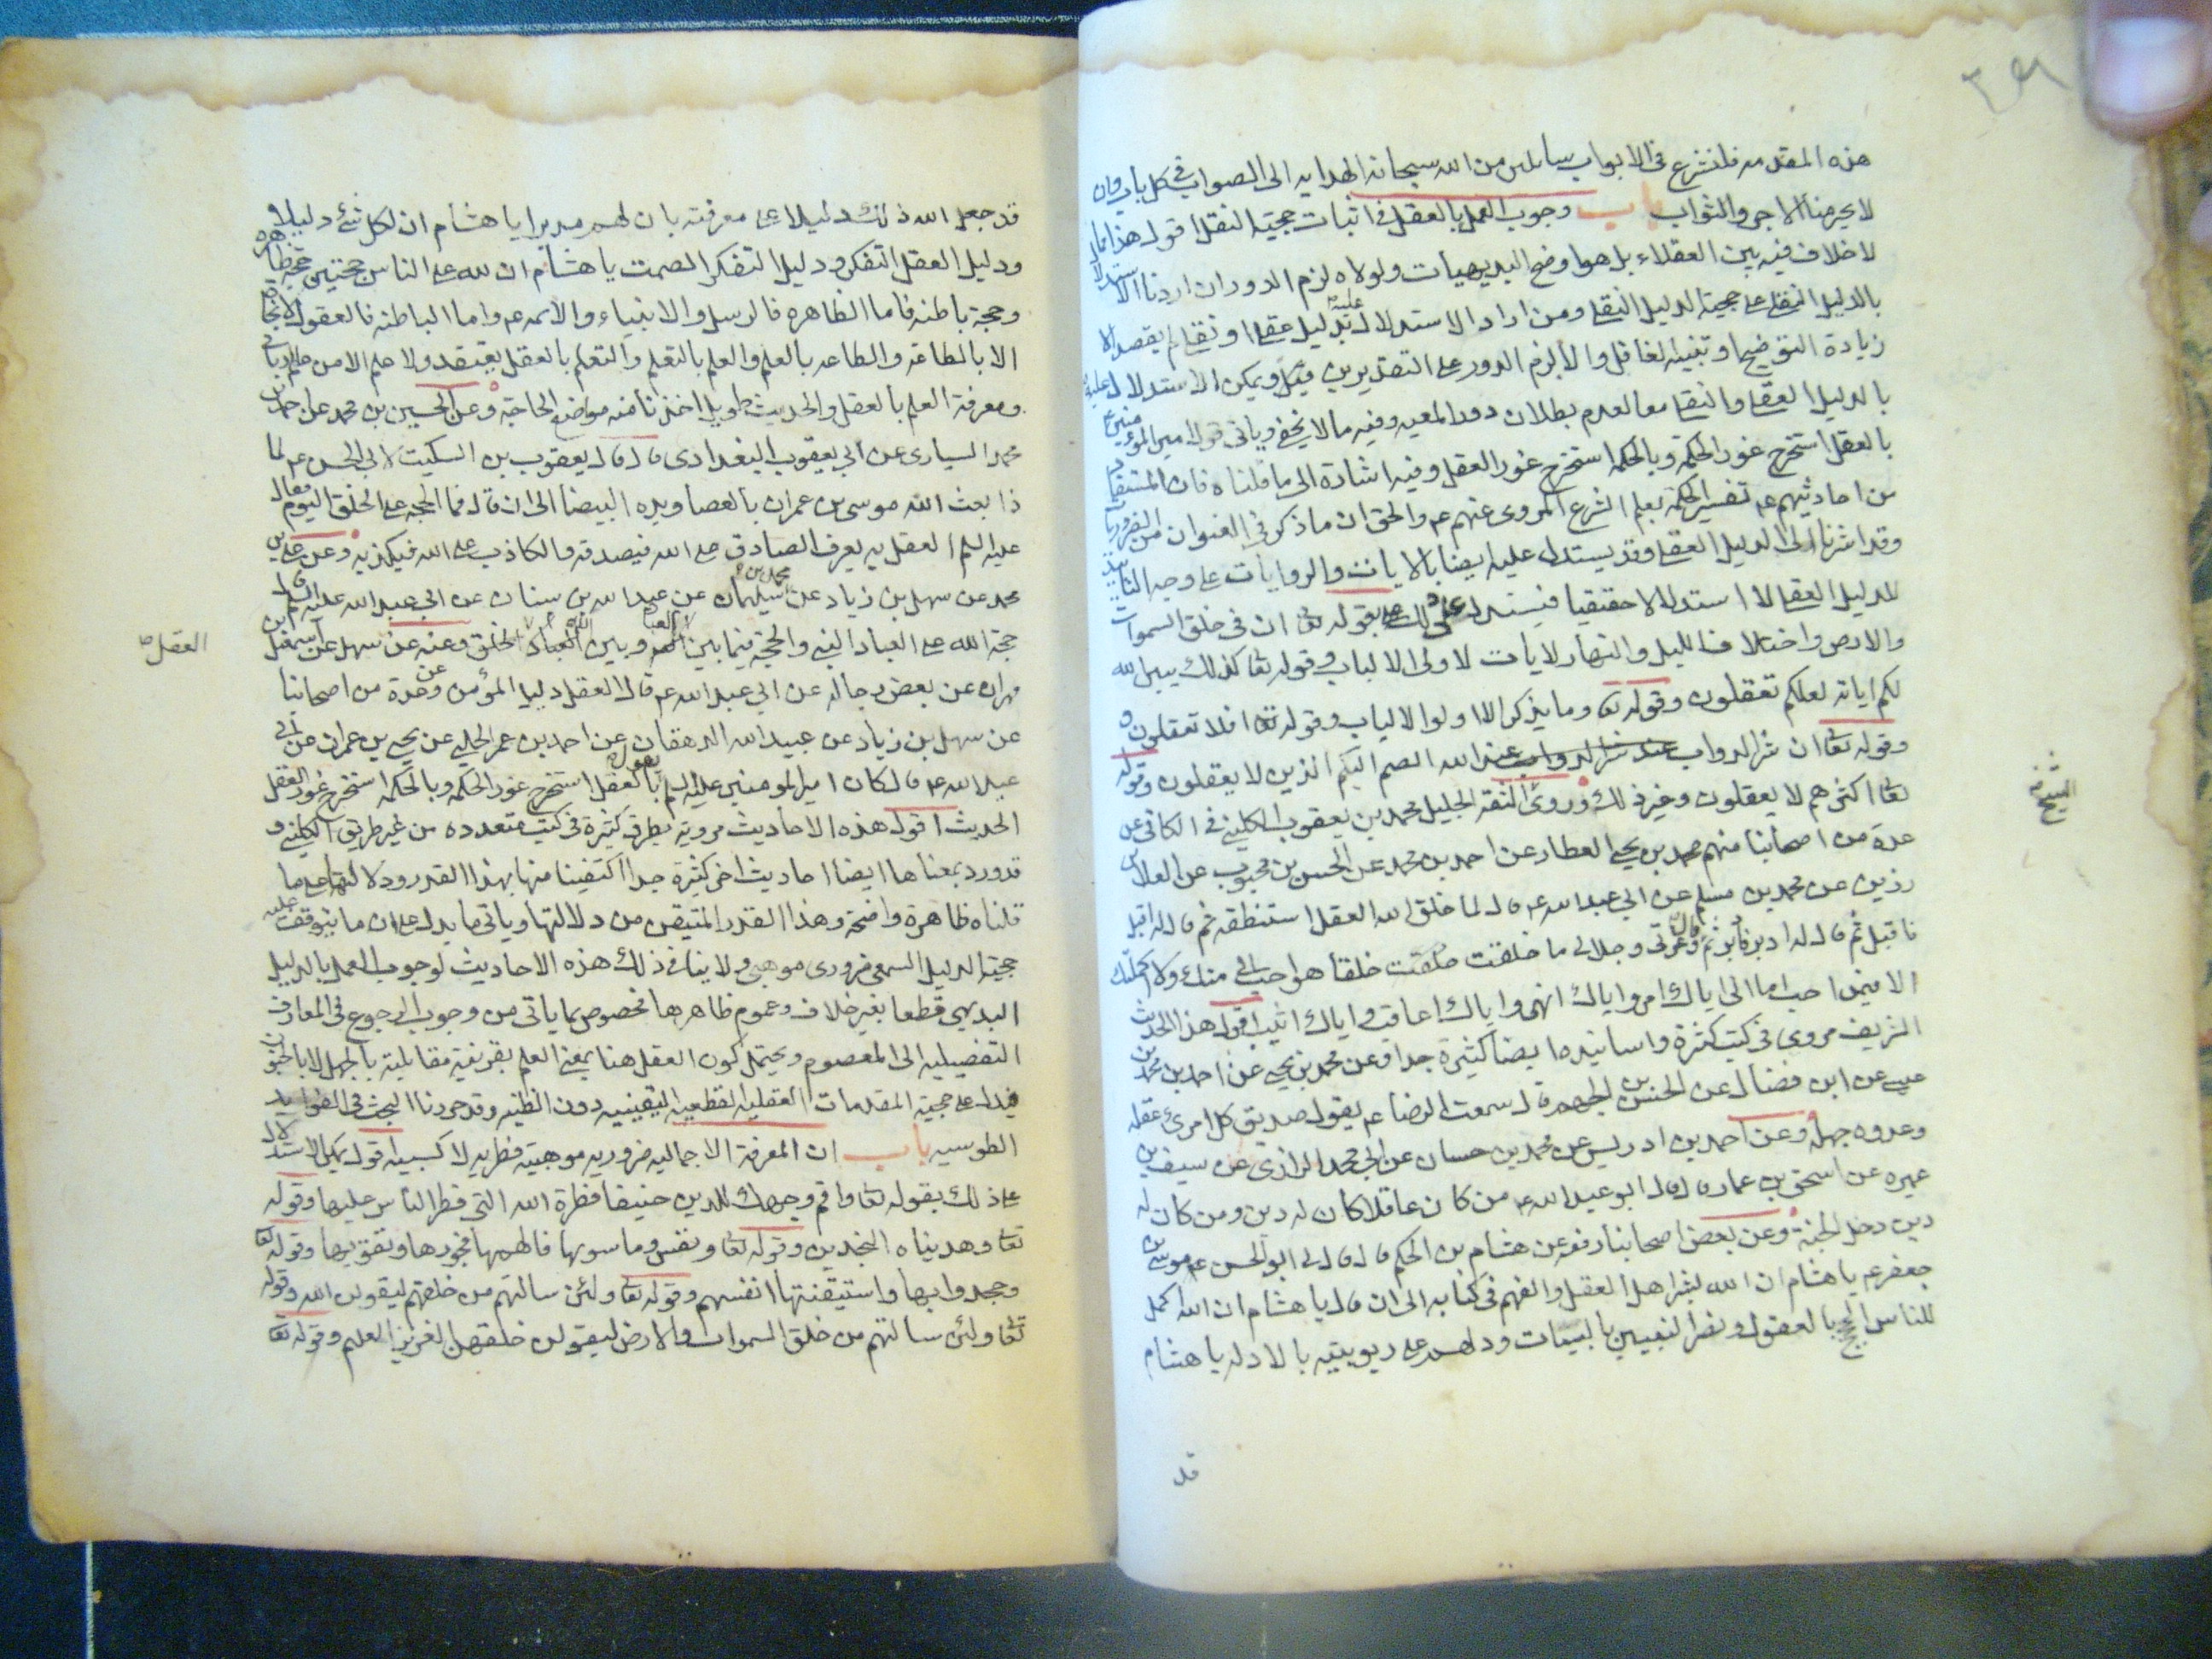 هذه المقدمه فلنشرع فى الابواب سائلين من الله سبحانه الهدايه الى الصواب فى كل باب وان
لا يحرمنا الاجر والثواب باب وجوب العمل بالعقل فى اثبات حجية النقل اقول هذا مما
لا خلاف فيه بين العقلاء بل هو اوضح البديهيات ولولاه لزم الدور ان اردنا الاستدلال
بالدليل النقلى على حجية الدليل النقلى ومن اراد الاستدلال عليه بدليل عقلى او نقلى لم يقصد الا
زيادة التوضيح او تنبيه الغافل والا لزم الدور على التقديرين ويمكن الاستدلال عليه
بالدليل العقلى والنقلى معا لعدم بطلان دور المعيه وفيه ما لا يخفى وياتى قول امير المؤمنين ع
بالعقل استخرج غور الحكمة وبالحكمة استخرج غور العقل وفيه اشارة الى ما قلناه فان المستفاد
من احاديثهم ع تفسير الحكمة بعلم الشرع المروى عنهم ع والحق ان ما ذكر فى العنوان من الضروريات
وقد اشرنا الى الدليل العقلى وقد يستدل عليه ايضا بالايات والروايات على وجه التاييد
للدليل العقلى لا استدلالا حقيقيا فيستدل على ذلك بقوله تعا ان فى خلق السموات
والارض واختلاف الليل والنهار لايات لاولى الالباب وقوله تعا كذلك يبين الله
لكم اياته لعلكم تعقلون وقوله تعا وما يذكر الا اولوا الالباب وقوله تعا افلا تعقلون و
وقوله تعا ان شر الدواب عند الله الصم البكم الذين لا يعقلون وقوله
تعا اكثرهم لا يعقلون وغير ذلك وروى الثقة الجليل محمد بن يعقوب الكلينى فى الكافى عن
الشيخ
عدة من اصحابنا منهم محمد بن يحيى العطار عن احمد بن محمد عن الحسن بن محبوب عن العلا بن
رزين عن محمد بن مسلم عن ابى عبد الله ع قال لما خلق الله العقل استنطقه ثم قال له اقبل
فاقبل ثم قال له ادبر فادبر ثم قال وعزتى وجلالى ما خلقت خلقا هو احب الى منك ولا اكملتك
الا فيمن احب اما انى اياك امر واياك انهى واياك اعاقب واياك اثيب اقول هذا الحديث
الشريف مروى فى كتب كثيرة واسانيده ايضا كثيرة جدا وعن محمد بن يحيى عن احمد بن محمد بن
عيسى عن ابن فضال عن الحسن بن الجهم قال سمعت الرضا ع يقول صديق كل امرئ عقله
وعدوه جهله وعن احمد بن ادريس عن محمد بن حسان عن ابى محمد الرازى عن سيف بن
عميره عن اسحق بن عمار قال قال ابو عبد الله ع من كان عاقلا كان له دين ومن كان له
دين دخل الجنة وعن بعض اصحابنا رفعه عن هشام بن الحكم قال قال لى ابو الحسن موسى بن
جعفر ع يا هشام ان الله بشر اهل العقل والفهم فى كتابه الى ان قال يا هشام ان الله اكمل
للناس الحجج بالعقول ونصر النبيين بالبينات ودلهم على ربوبيته بالادله يا هشام
قد
قد جعل الله ذلك دليلا على معرفته بان لهم مدبرا يا هشام ان لكل شئ دليلا و
ودليل العقل التفكر ودليل التفكر الصمت يا هشام ان لله على الناس حجتين حجة ظاهرة
وحجة باطنه فاما الظاهره فالرسل والانبياء والائمه ع واما الباطنه فالعقول لا نجاة
الا بالطاعة والطاعه بالعلم والعلم بالتعلم والتعلم بالعقل يعتقد ولا علم الا من عالم ربانى
ومعرفة العلم بالعقل والحديث طويل اخذنا منه مواضع الحاجة وعن الحسين بن محمد عن احمد بن
محمد السيارى عن ابى يعقوب البغدادى قال قال يعقوب بن السكيت لابى الحسن ع لما
ذا بعث الله موسى بن عمران بالعصا ويده البيضا الى ان قال فما الحجه على الخلق اليوم فقال
عليه السلم العقل به يعرف الصادق على الله فيصدقه والكاذب على الله فيكذبه وعن على بن
محمد عن سهل بن زياد عن محمد بن سليمان عن عبد الله بن سنان عن ابى عبد الله عليه السلم قال
حجة الله على العباد النبى والحجة فيما بين العباد وبين الله العقل وعنه عن سهل عن اسمعيل بن
العقل
مهران عن بعض رجاله عن ابى عبد الله ع قال العقل دليل المؤمن وعن عدة من اصحابنا
عن سهل بن زياد عن عبيد الله الدهقان عن احمد بن عمر الحلبى عن يحيى بن عمران عن ابى
عبد الله ع قال كان امير المومنين عليه السلم يقول بالعقل استخرج غور الحكمه وبالحكمه استخرج غور العقل
الحديث اقول هذه الاحاديث مروية بطرق كثيرة فى كتب متعدده من غير طريق الكلينى و
قد ورد بمعناها ايضا احاديث اخر كثيرة جدا اكتفينا منها بهذا القدر ودلالتها على ما
قلناه ظاهرة واضحة وهذا القدر المتيقن من دلالتها وياتى ما يدل على ان ما يتوقف عليه
حجية الدليل السمعى ضرورى موهبى ولا ينافى ذلك هذه الاحاديث لوجوب العمل بالدليل
البديهى قطعا بغير خلاف وعموم ظاهرها مخصوص بما ياتى من وجوب الرجوع فى المعارف
التفصيليه الى المعصوم ويحتمل كون العقل هنا بمعنى العلم بقرينة مقابلته بالجهل لا بالجنون
فيدل على حجية المقدمات العقليه القطعيه اليقينيه دون الظنيه وقد حررنا البحث فى الفوايد
الطوسيه باب ان المعرفة الاجماليه ضروريه موهبيه فطريه لا كسبيه اقول يمكن الاستدلال
على ذلك بقوله تعا واقم وجهك للدين حنيفا فطرة الله التى فطر الناس عليها وقوله
تعا وهديناه النجدين وقوله تعا ونفس وما سويها فالهمها فجورها وتقويها وقوله تعا
وجحدوا بها واستيقنتها انفسهم وقوله تعا ولئن سالتهم من خلقهم ليقولن الله وقوله
تعا ولئن سالتهم من خلق السموات والارض ليقولن خلقهن العزيز العليم وقوله تعا